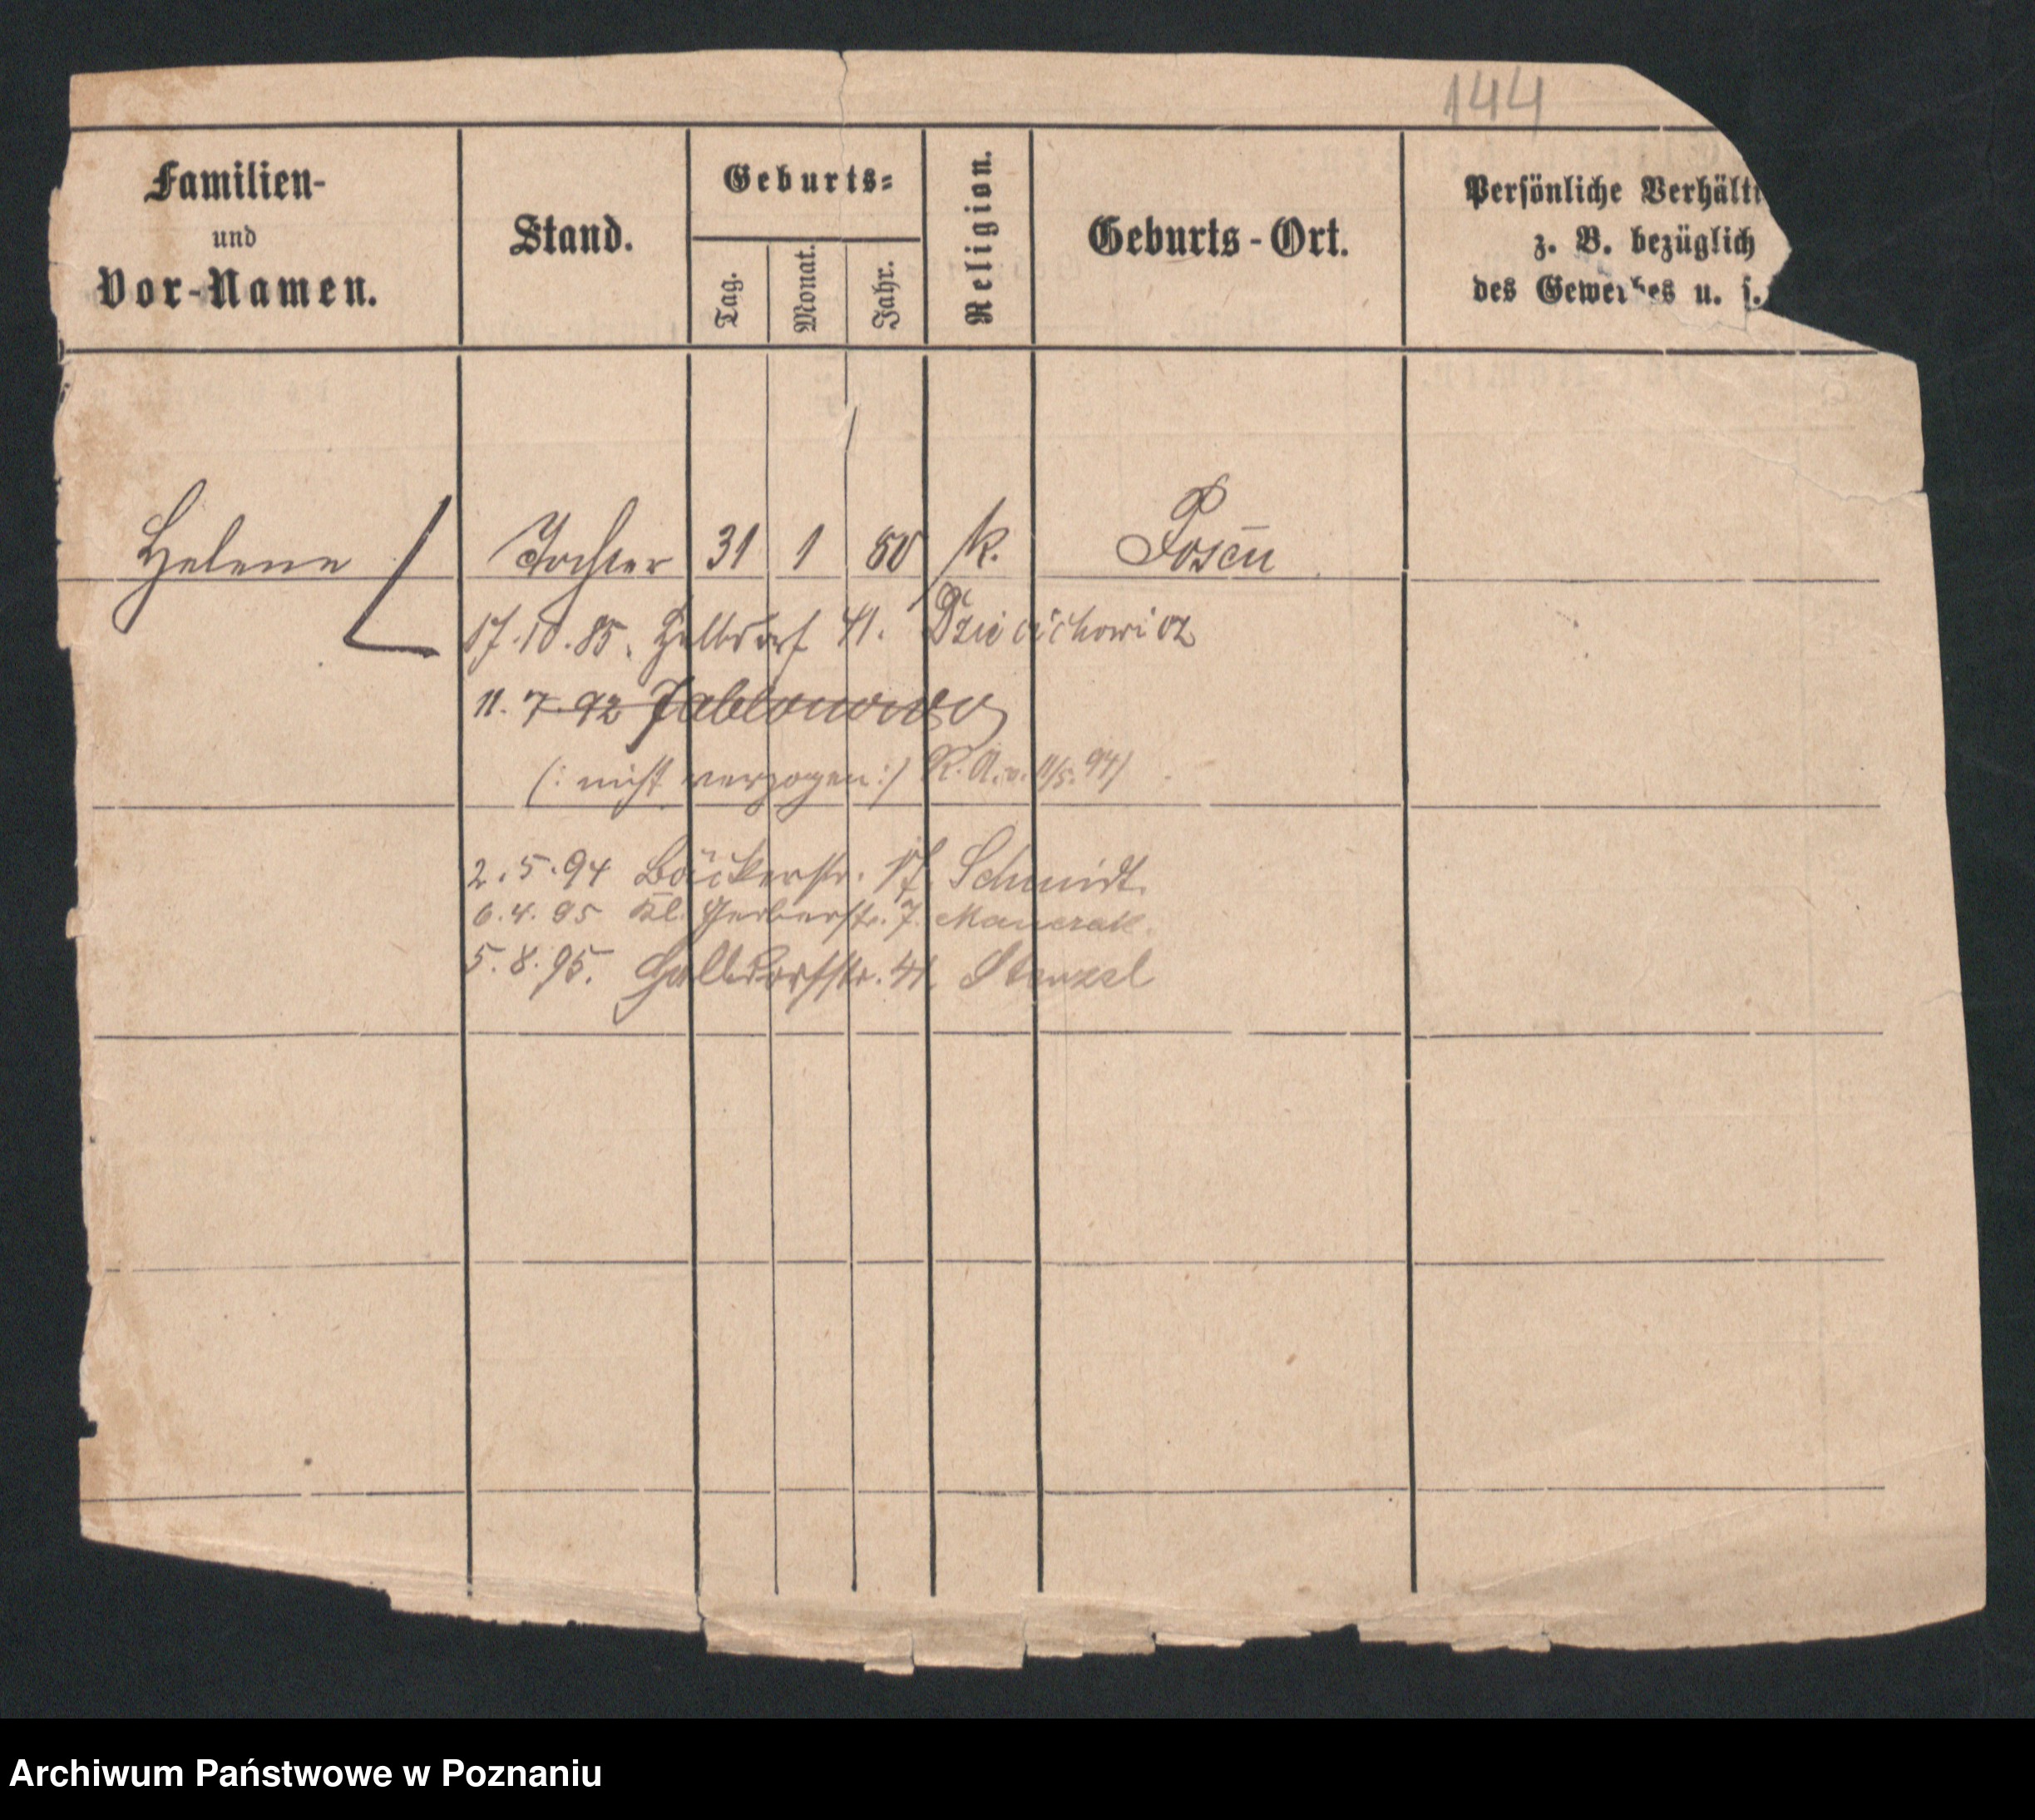 144
Familien-
und
Vor-Namen.
Stand.
Geburts-
Tag.
Monat.
Jahr.
Religion.
Geburts-Ort.
Persönliche Verhält
z. B. bezüglich
des Gewerbes u. s.
Helene Tochter 31 1 80 k. Posen
17.10.85. Halbdorf 41.
11. 7. 92 Jablonowo
(: nicht verzogen :) R. A. v. 11/5. 94)
2. 5. 94 Bäckerstr. 17. Schmidt.
6. 4. 95 Kl. Gerberstr. 7.
5. 8. 95. Halbdorfstr. 41. Stenzel
Archiwum Państwowe w Poznaniu